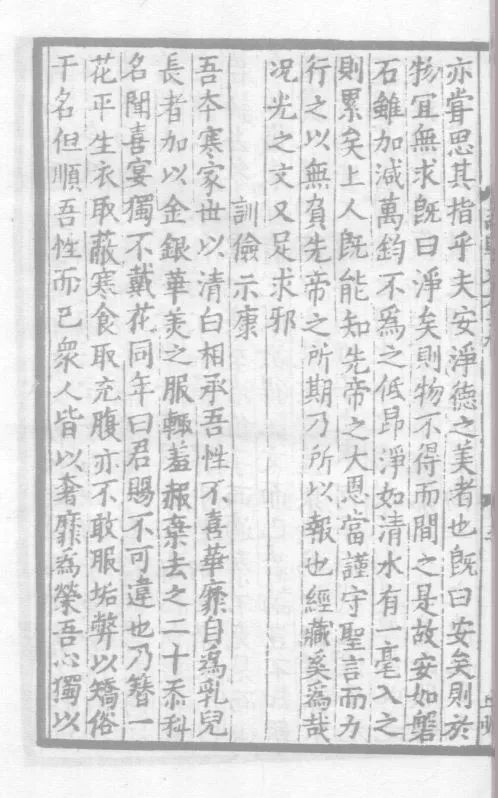 亦嘗思其指乎夫安淨德之美者也旣曰安矣則於
物冝無求旣曰淨矣則物不得而間之是故安如磐
石雖加減萬鈞不爲之低昂淨如清水有一毫入之
則累矣上人旣能知先帝之大恩當謹守聖言而力
行之以無負先帝之所期乃所以報也經藏奚爲哉
况光之文又足求邪
訓儉示康
吾夲寒家世以清白相承吾性不喜華靡自爲乳兒
長者加以金銀華羙之服輒羞赧棄去之二十忝科
名聞喜宴獨不戴花同年曰君賜不可違也乃簪一
花平生衣取蔽寒食取充腹亦不敢服垢弊以矯俗
干名但順吾性而已衆人皆以奢靡爲榮吾心獨以